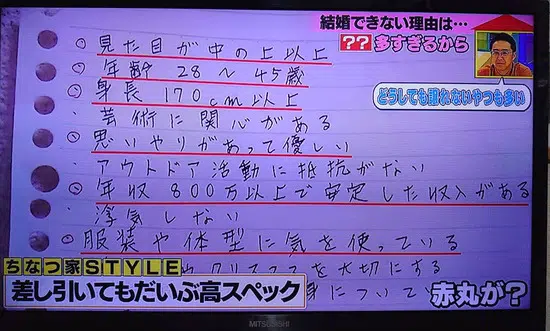 結婚できない理由は…
??多すぎるから
どうしても譲れないやつも多い
見た目が中の上以上
年齢 28～45歳
身長 170cm以上
芸術に関心がある
思いやりがあって優しい
アウトドア活動に抵抗がない
年収800万以上で安定した収入がある
浮気しない
服装や体型に気を使っている
クリスマスを大切にする
身について
ちなつ家STYLE
差し引いてもだいぶ高スペック
赤丸が?
MITSUBISHI